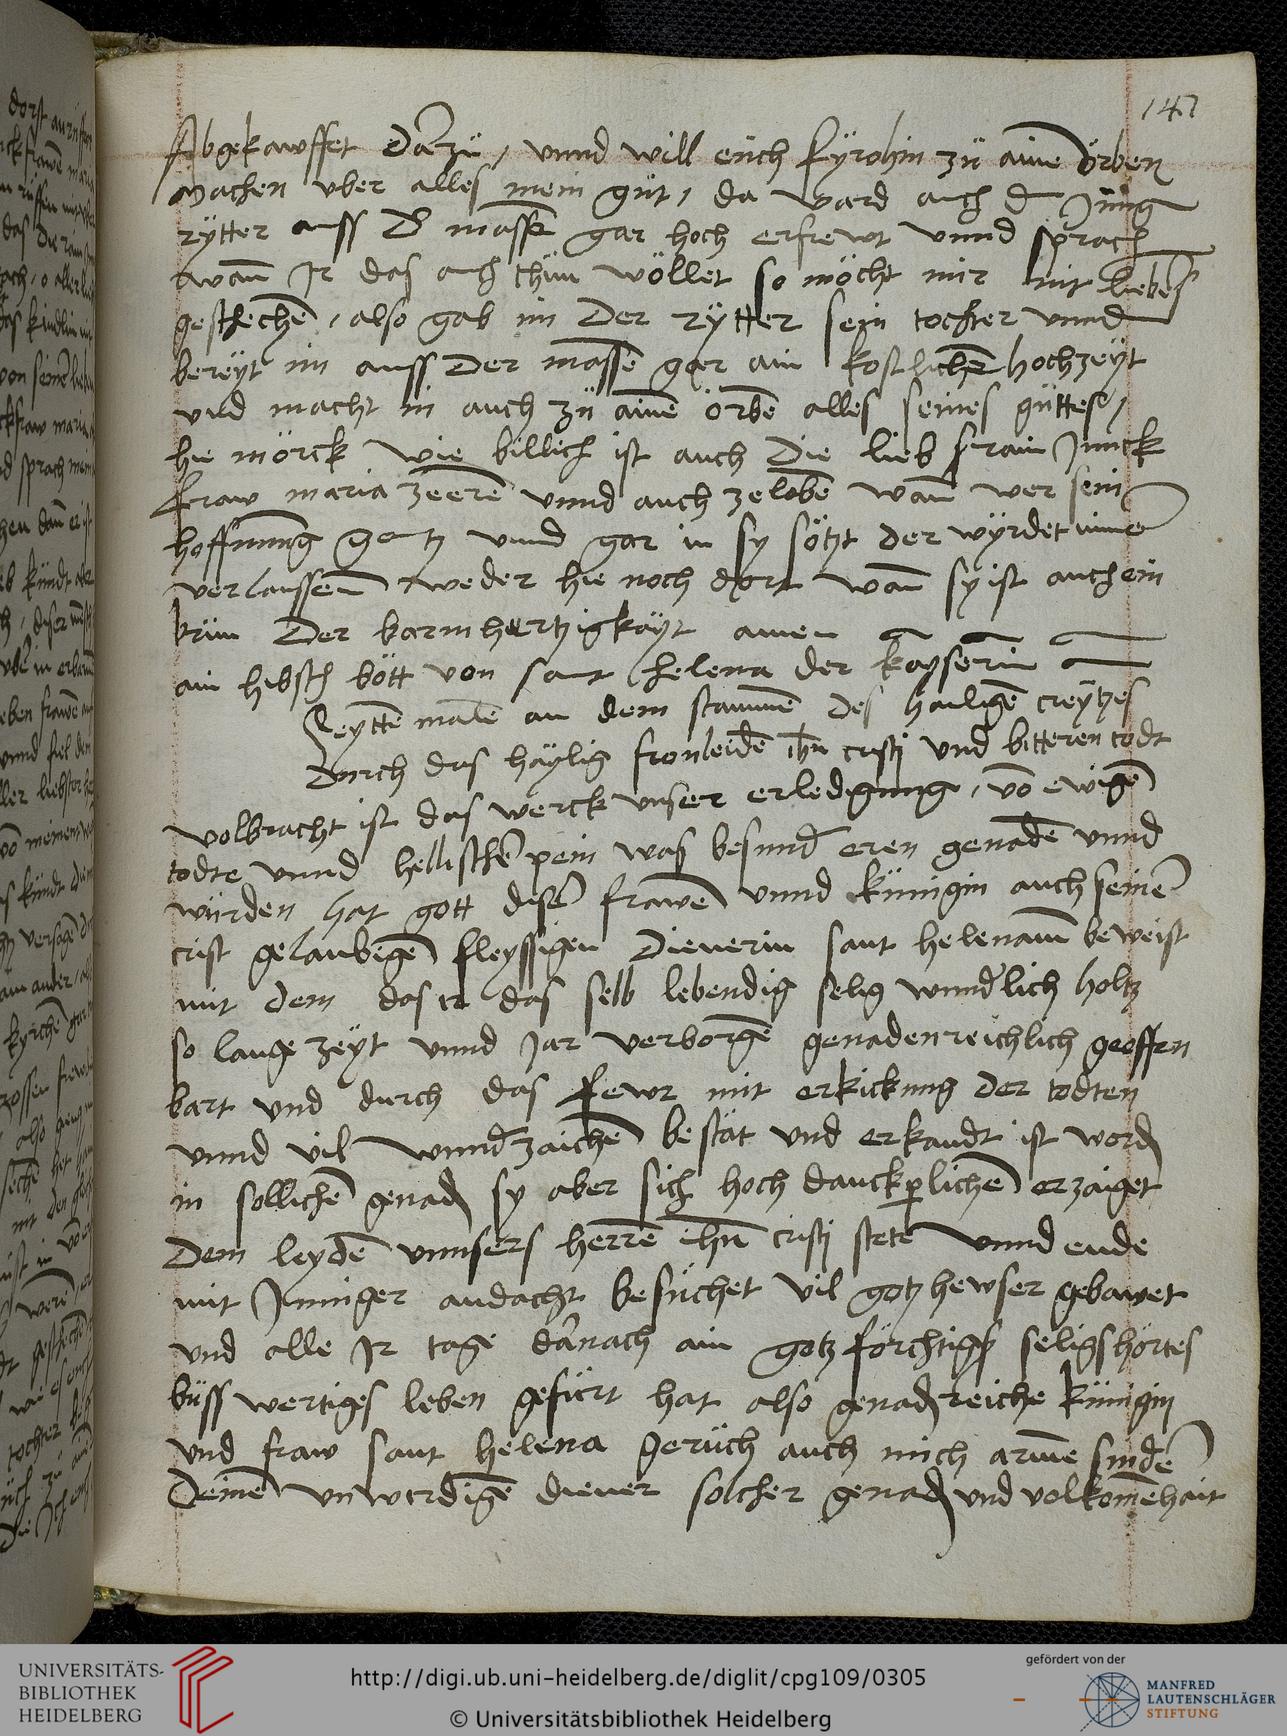 147
Abgekawffet darzů / vnnd will eüch fyrohin zů aine örben
machen vber alles mein gůt / da ward auch d Jung
rytter auss d massen gar hoch erfrewt vnnd sprach
wan̄ Jr das auch thůn wöllet so möcht mir nit liebers
geschechen̄ / also gab im der rytter sein tochter vnnd
bereyt im auss der masse gar ain kostlichen̄ hochzeyt
vnd macht in auch zů ainē örbē alles seines gůttes /
hie mörck wie billich ist auch die lieb fraw Junck
fraw maria zeerē vnnd auch zelobē wan̄ wer sein
hoffnung gentz vnnd gar in sy sötzt der wyrdet nimer
verlaussenn weder hie noch dort wan̄ sy ist auch ein
brün der barmhertzigkäyt amen
ain hibsch bött von sant helena der kayserin
Zeyttē malē an dem stammē des hailigē creytzes
durch das häylig fronleidē ihū cristj vnd bitteren todt
volbracht ist das werck vnser erledigung / vō ewigē
todte vnnd hellischē pein was besunder eren genadē vnnd
würden hat gott diser frawē vnnd künigin auch seiner
crist gelaubigē fleyssigen dienerin sant helenam beweist
mit dem das er das selb lebendig selig wunderlich holtz
so lange zeyt vnnd Jar verborgē genadenreichlich geoffen
bart vnd durch das fewr mit erkickung der todten
vnnd vil wunderzaichē bestät vnd erkandt ist worden
in sollichē genaden sy aber sich hoch danckperlichē erzaiget
dem leydē vnnsers herrē ihū cristj stete vnnd ende
mit Jnniger andacht besüchet vil gotzhewser gebawet
vnd alle Jr tage darnach ain gotzförchtigs seligs hörtes
büsswertiges leben gefürt hat also genadenreiche künigin
vnd fraw sant helena gerüch auch mich armē sinder
deinē vnwerdigē diener solcher genaden vnd volkomēhait
UNIVERSITÄTS-
BIBLIOTHEK
HEIDELBERG
http://digi.ub.uni-heidelberg.de/diglit/cpg109/0305
© Universitätsbibliothek Heidelberg
gefördert von der
MANFRED
LAUTENSCHLÄGER
STIFTUNG